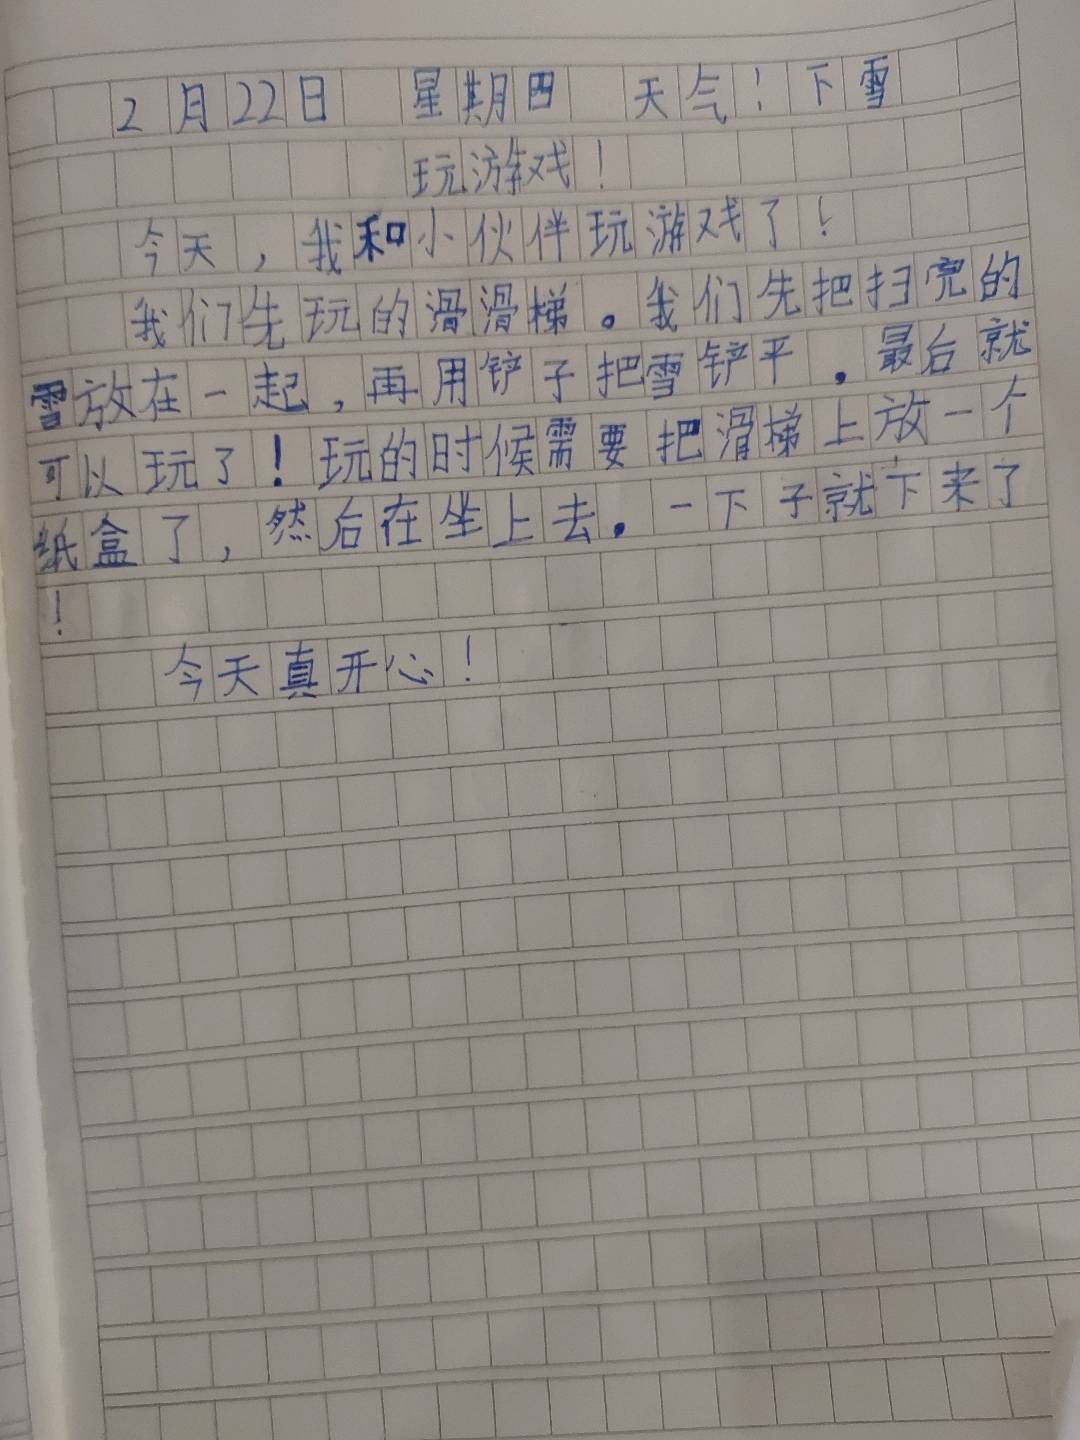 2月22日 星期四 天气！下雪
玩游戏！
今天，我和小伙伴玩游戏了！
我们先玩的滑滑梯。我们先把扫完的
雪放在一起，再用铲子把雪铲平．最后就
可以玩了！玩的时候需要把滑梯上放一个
纸盒了，然后在坐上去．一下子就下来了
！
今天真开心！